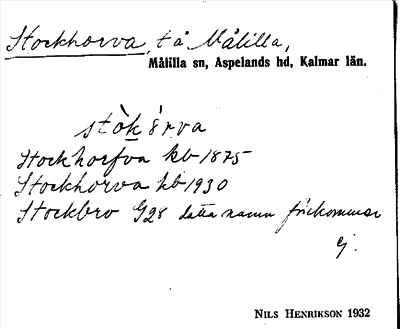 Stockhorva, t å Målilla,
Målilla sn, Aspelands hd, Kalmar län.
stòk érva
Stockhorfva kb 1875
Stockhorva kb 1930
Stockbro G28 detta namn förekommer
ej.
NILS HENRIKSON 1932